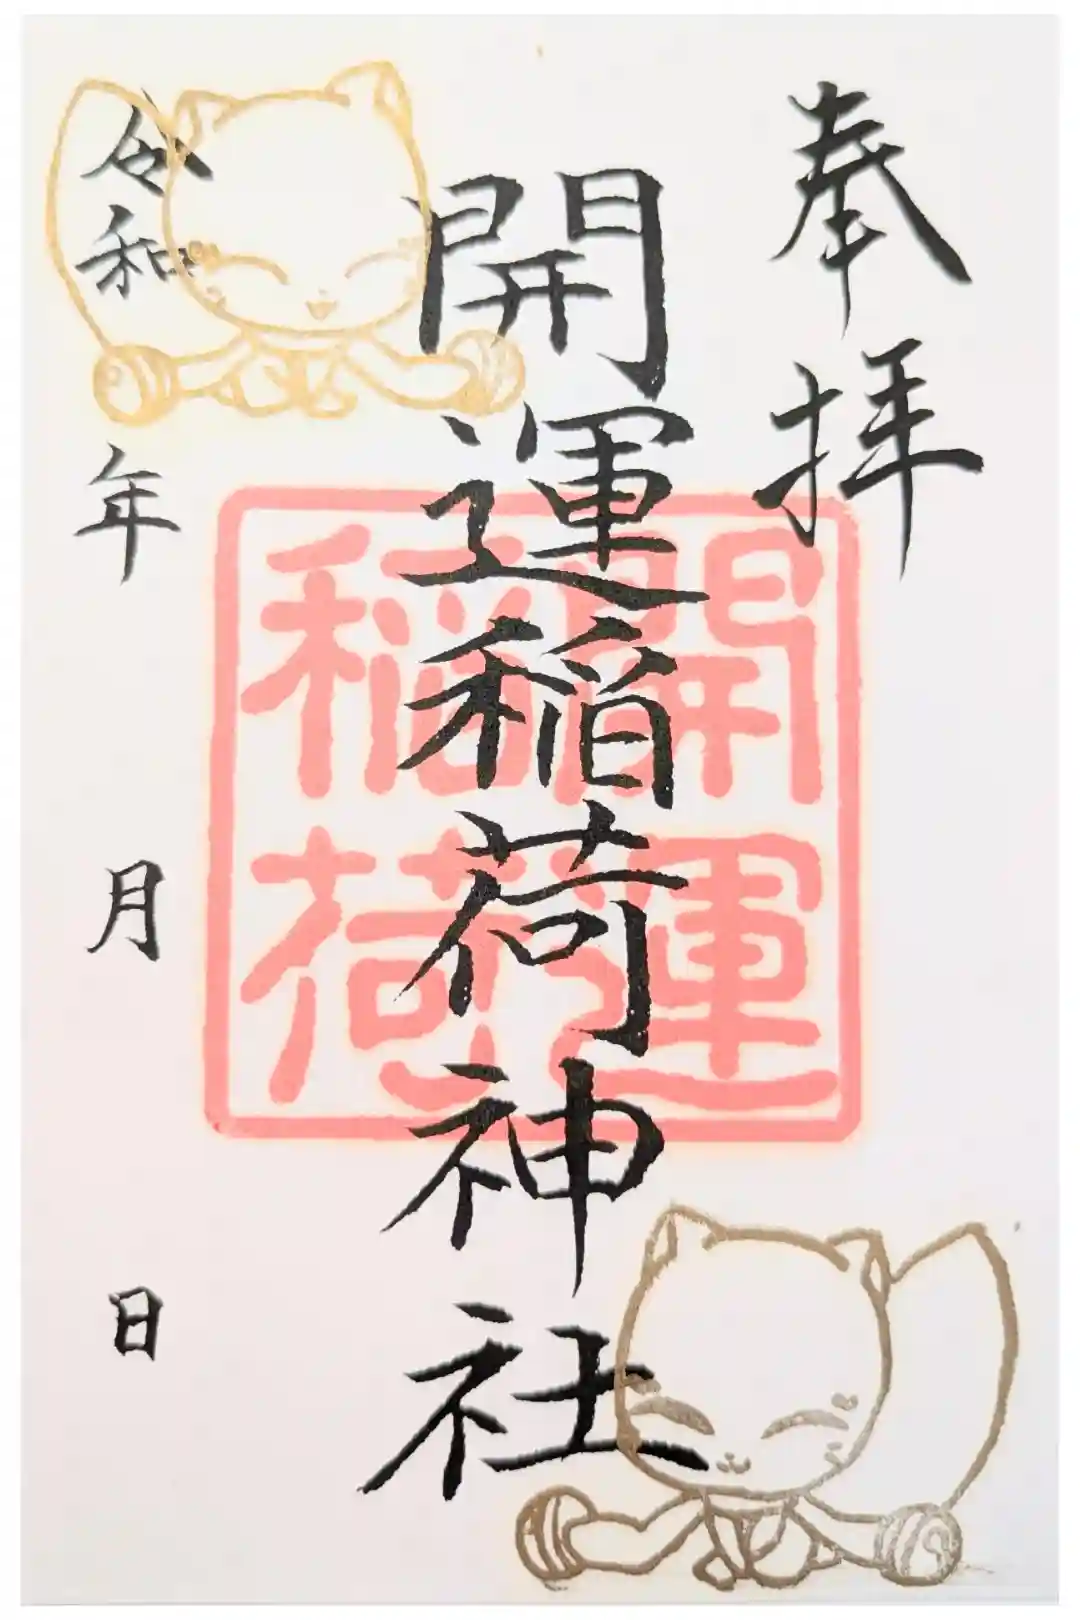 奉拝
開運稲荷神社
開運
稲荷
令和 年 月 日